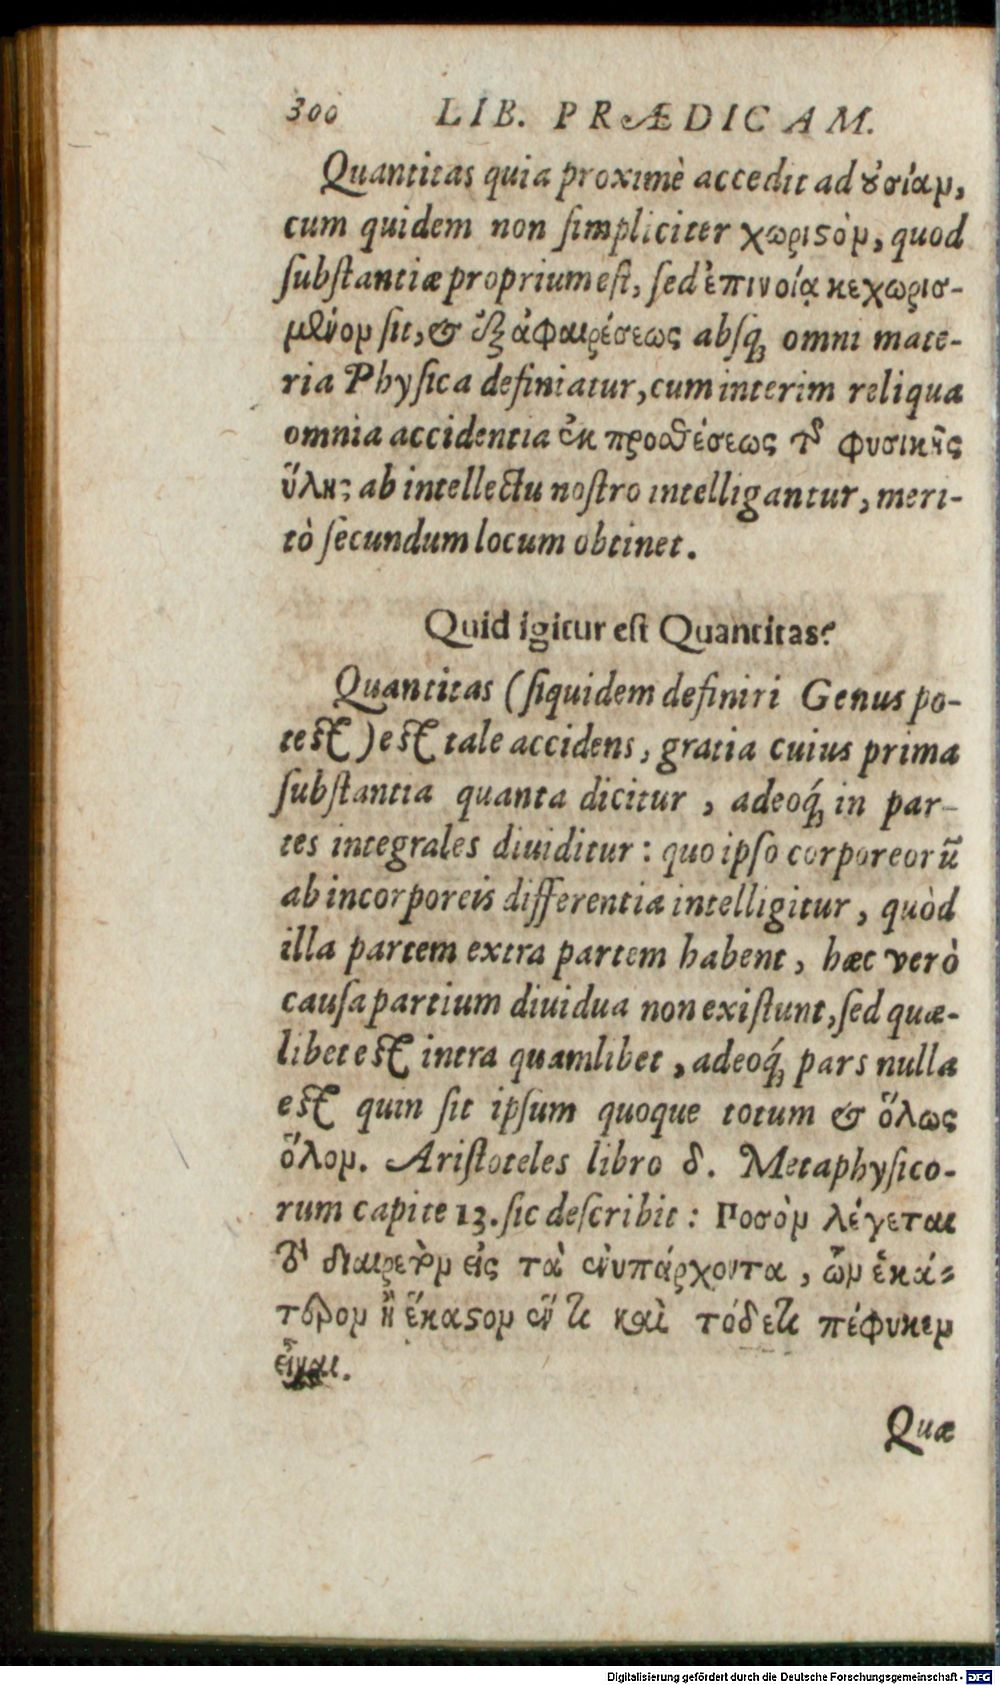 300 LIB. PRÆDICAM.
Quantitas quia proximè accedit ad ȣσίαμ,
cum quidem non ſimpliciter χωριϛὸμ, quod
ſubſtantiæ proprium eſt, ſed ἐπινοίᾳ κεχωρισ-
μένομ ſit, & ἐξ ἀφαιρέσεως abſq; omni mate-
ria Phyſica definiatur, cum interim reliqua
omnia accidentia ἐκ προσθέσεως τῆς φυσικῆς
ὕλης ab intellectu noſtro intelligantur, meri-
tò ſecundum locum obtinet.
Quid igitur eſt Quantitas?
Quantitas (ſiquidem definiri Genus po-
teſt) eſt tale accidens, gratia cuius prima
ſubſtantia quanta dicitur, adeoq́; in par-
tes integrales diuiditur: quo ipſo corporeorũ
ab incorporeis differentia intelligitur, quòd
illa partem extra partem habent, hæc verò
cauſa partium diuidua non exiſtunt, ſed quæ-
libet eſt intra quamlibet, adeoq́; pars nulla
eſt quin ſit ipſum quoque totum & ὅλως
ὅλομ. Ariſtoteles libro δ. Metaphyſico-
rum capite 13. ſic deſcribit: Ποσὸμ λέγεται
τὸ διαιρετὸμ εἰς τὰ ἐνυπάρχοντα, ὧμ ἑκά-
τερομ ἢ ἕκαϛομ ἕν τι καὶ τόδε τι πέφυκεμ
εἶναι.
Quæ
Digitalisierung gefördert durch die Deutsche Forschungsgemeinschaft - DFG